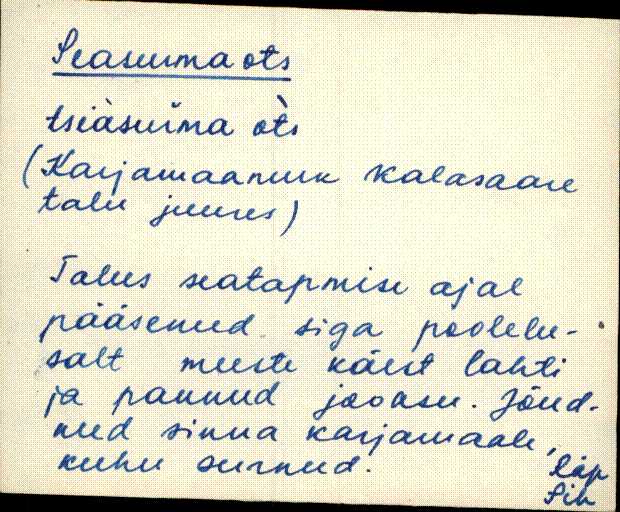 Seasurma ots
tsiàsuřma òts
(Karjamaanurk Kalasaare
talu juures)
Talus seatapmise ajal
pääsenud siga poolelu-
salt meeste käest lahti
ja pannud jooksu. Jõud-
nud sinna karjamaale,
kuhu surnud.
Räp